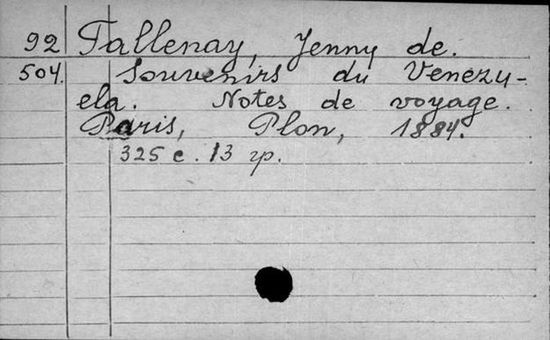 92 Tallenay, Jenny de.
504. Souvenirs du Venezu-
ela. Notes de voyage.
Paris, Plon, 1884.
325 с. 13 гр.